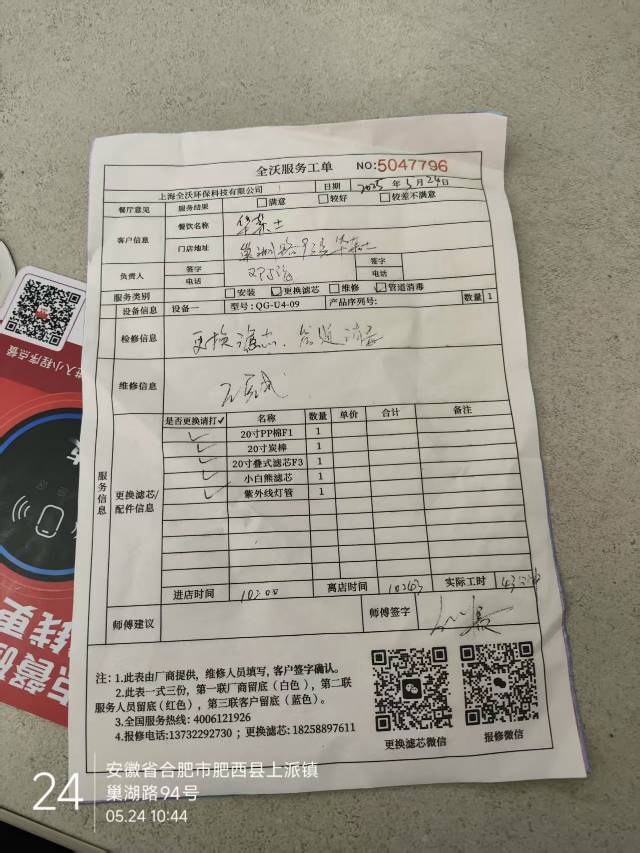 全沃服务工单 NO:5047796
上海全沃环保科技有限公司 日期 2025年5月24日
餐厅意见 服务结果 满意 较好 较差不满意
客户信息 餐饮名称 华莱士
门店地址 巢湖路 华莱士
负责人 签字 签字
电话 电话
服务类别 安装 更换滤芯 维修 管道消毒
设备信息 设备一 型号:QG-U4-09 产品序列号: 数量 1
检修信息 更换滤芯. 管道消毒
维修信息 已完成
服务信息
更换滤芯/配件信息
是否更换请打✓ 名称 数量 单价 合计 备注
✓ 20寸PP棉F1 1
✓ 20寸炭棒 1
✓ 20寸叠式滤芯F3 1
✓ 小白熊滤芯 1
✓ 紫外线灯管 1
进店时间 10:00 离店时间 10:43 实际工时 43分钟
师傅建议 师傅签字
注: 1.此表由厂商提供, 维修人员填写, 客户签字确认。
2.此表一式三份, 第一联厂商留底 (白色), 第二联
服务人员留底(红色), 第三联客户留底 (蓝色)。
3.全国服务热线: 4006121926
4.报修电话:13732292730 ; 更换滤芯:18258897611
更换滤芯微信 报修微信
进入小程序点餐
24
安徽省合肥市肥西县上派镇
巢湖路94号
05.24 10:44